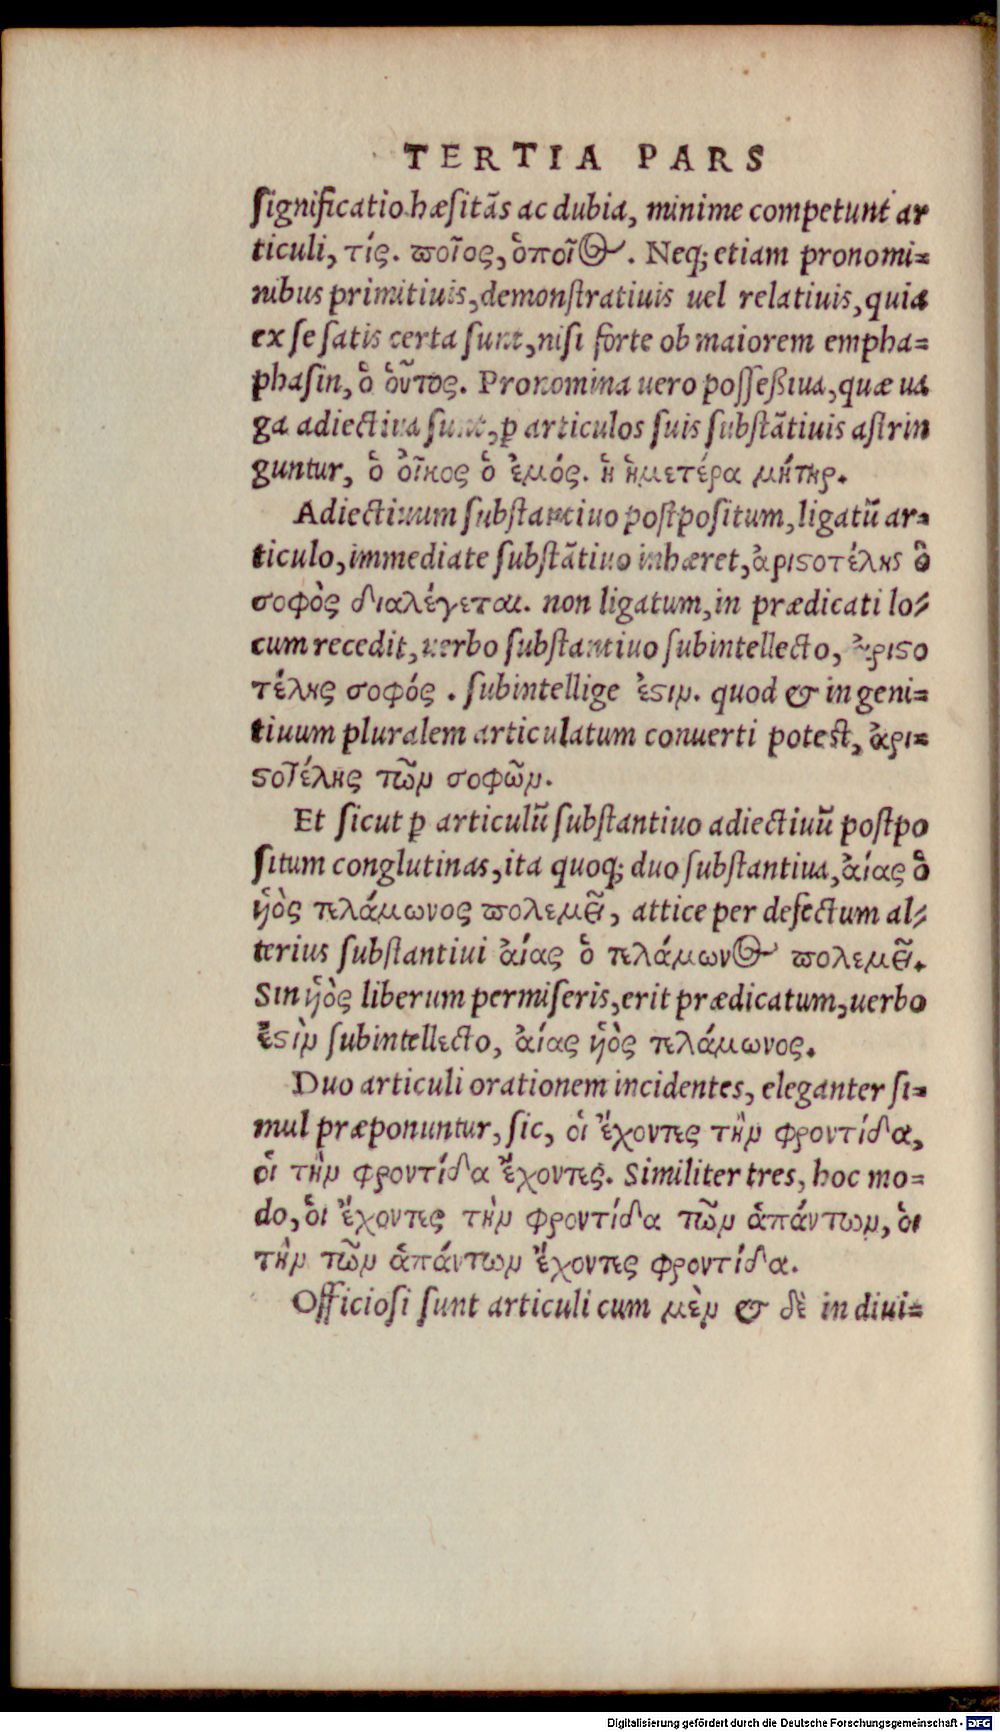 TERTIA PARS
significatio hæsitãs ac dubia, minime competunt ar
ticuli, τίς. ϖοῖος, ὁποῖος. Neq; etiam pronomi=
nibus primitiuis, demonstratiuis uel relatiuis, quia
ex se satis certa sunt, nisi forte ob maiorem empha=
phasin, ὁ οὗτος. Pronomina uero posseßiua, quæ ua
ga adiectiua sunt, ꝑ articulos suis substãtiuis astrin
guntur, ὁ οἶκος ὁ ἐμός. ἡ ἡμετέρα μήτηρ.
Adiectiuum substantiuo postpositum, ligatũ ar=
ticulo, immediate substãtiuo inhæret, ἀριϛοτέλης ὁ
σοφὸς διαλέγεται. non ligatum, in prædicati lo=
cum recedit, uerbo substantiuo subintellecto, ἀριϛο
τέλης σοφός . subintellige ἐϛιν. quod & in geni=
tiuum pluralem articulatum conuerti potest, ἀρι=
ϛοτέλης τῶν σοφῶν.
Et sicut ꝑ articulũ substantiuo adiectiuũ postpo
situm conglutinas, ita quoq; duo substantiua, αἴας ὁ
ὑὸς τελάμωνος ϖολεμεῖ, attice per defectum al=
terius substantiui αἴας ὁ τελάμωνος ϖολεμεῖ.
Sin ὑὸς liberum permiseris, erit prædicatum, uerbo
ἐϛὶν subintellecto, αἴας ὑὸς τελάμωνος.
Duo articuli orationem incidentes, eleganter si=
mul præponuntur, sic, οἱ ἔχοντες τὴν φροντίδα,
οἱ τὴν φροντίδα ἔχοντες. Similiter tres, hoc mo=
do, οἱ ἔχοντες τὴν φροντίδα τῶν ἁπάντων, οἱ
τὴν τῶν ἁπάντων ἔχοντες φροντίδα.
Officiosi sunt articuli cum μὲν & δὲ in diui=
Digitalisierung gefördert durch die Deutsche Forschungsgemeinschaft - DFG